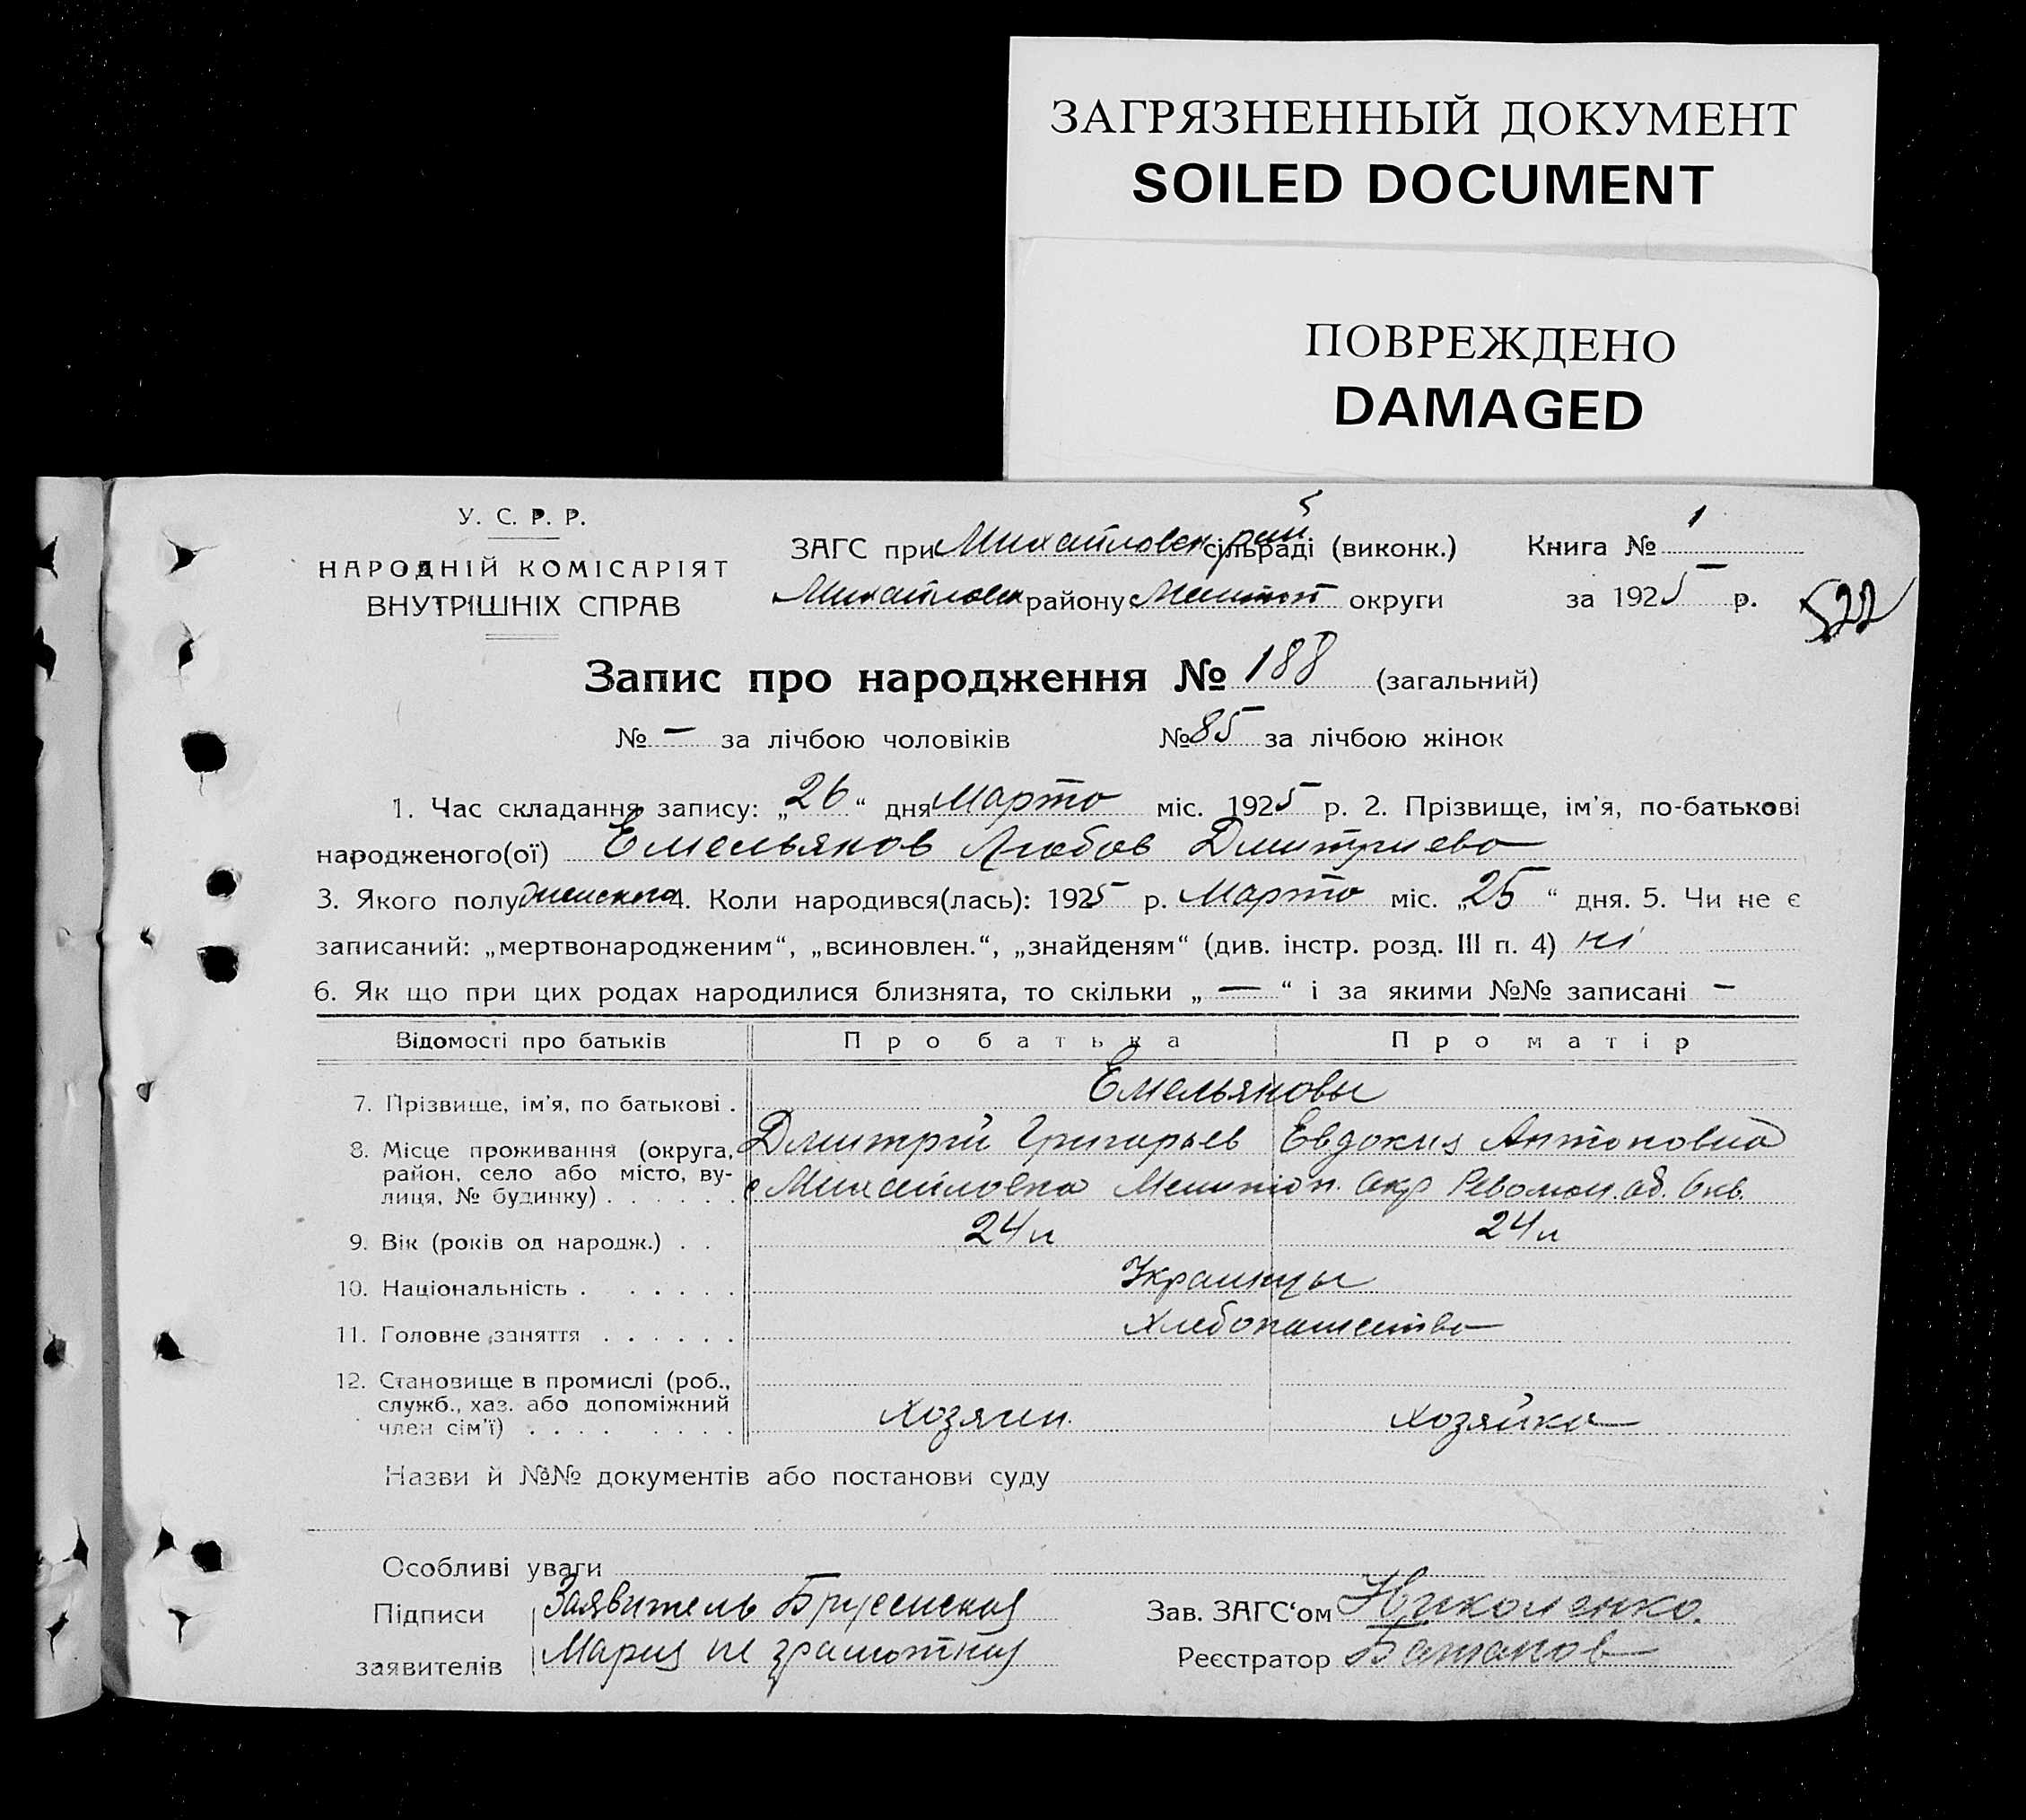 ЗАГРЯЗНЕННЫЙ ДОКУМЕНТ
SOILED DOCUMENT
ПОВРЕЖДЕНО
DAMAGED
У. С. Р. Р.
НАРОДНІЙ КОМІСАРІЯТ
ВНУТРІШНІХ СПРАВ
ЗАГС при Михайловск рай сільраді (виконк.)
Михайловск району Мелитоп округи
Книга № 1
за 1925 р.
522
Запис про народження № 188 (загальний)
№ — за лічбою чоловіків № 85 за лічбою жінок
1. Час складання запису: „26“ дня Марта міс. 1925 р. 2. Прізвище, ім'я, по-батькові
народженого(ої) Емельянов Любов Дмитриева
3. Якого полу женского 4. Коли народився(лась): 1925 р. Марта міс. „25“ дня. 5. Чи не є
записаний: „мертвонародженим“, „всиновлен.“, „знайденям“ (див. інстр. розд. III п. 4) ні
6. Як що при цих родах народилися близнята, то скільки „—“ і за якими №№ записані —
Відомості про батьків Про батька Про матір
7. Прізвище, ім'я, по батькові . Емельяновы
Дмитрий Григорьев Евдокия Антоновна
8. Місце проживання (округа,
район, село або місто, ву-
лиця, № будинку) . . . . . . с Михайловка Мелитоп. окр Револю. об. 6 кв.
9. Вік (років од народж.) . . 24 л 24 л
10. Національність . . . . . . Украинцы
11. Головне заняття . . . . . . Хлебопашество
12. Становище в промислі (роб.,
служб., хаз. або допоміжний
член сім'ї) . . . . . . . . хозяин. хозяйка
Назви й №№ документів або постанови суду
Особливі уваги
Підписи Заявитель Брусенская
заявителів Мария не грамотная
Зав. ЗАГС'ом Николенко.
Реєстратор